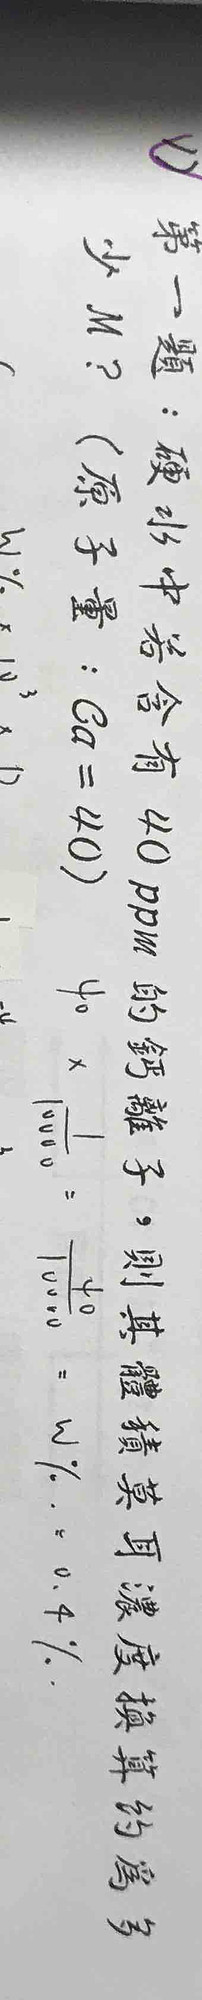 第一題：硬水中若含有 40 ppm 的鈣離子，則其體積莫耳濃度換算約為多
少 M？（原子量：Ca = 40） 40 × 1/10000 = 40/10000 = W% = 0.4%.
W% × 10³ × D